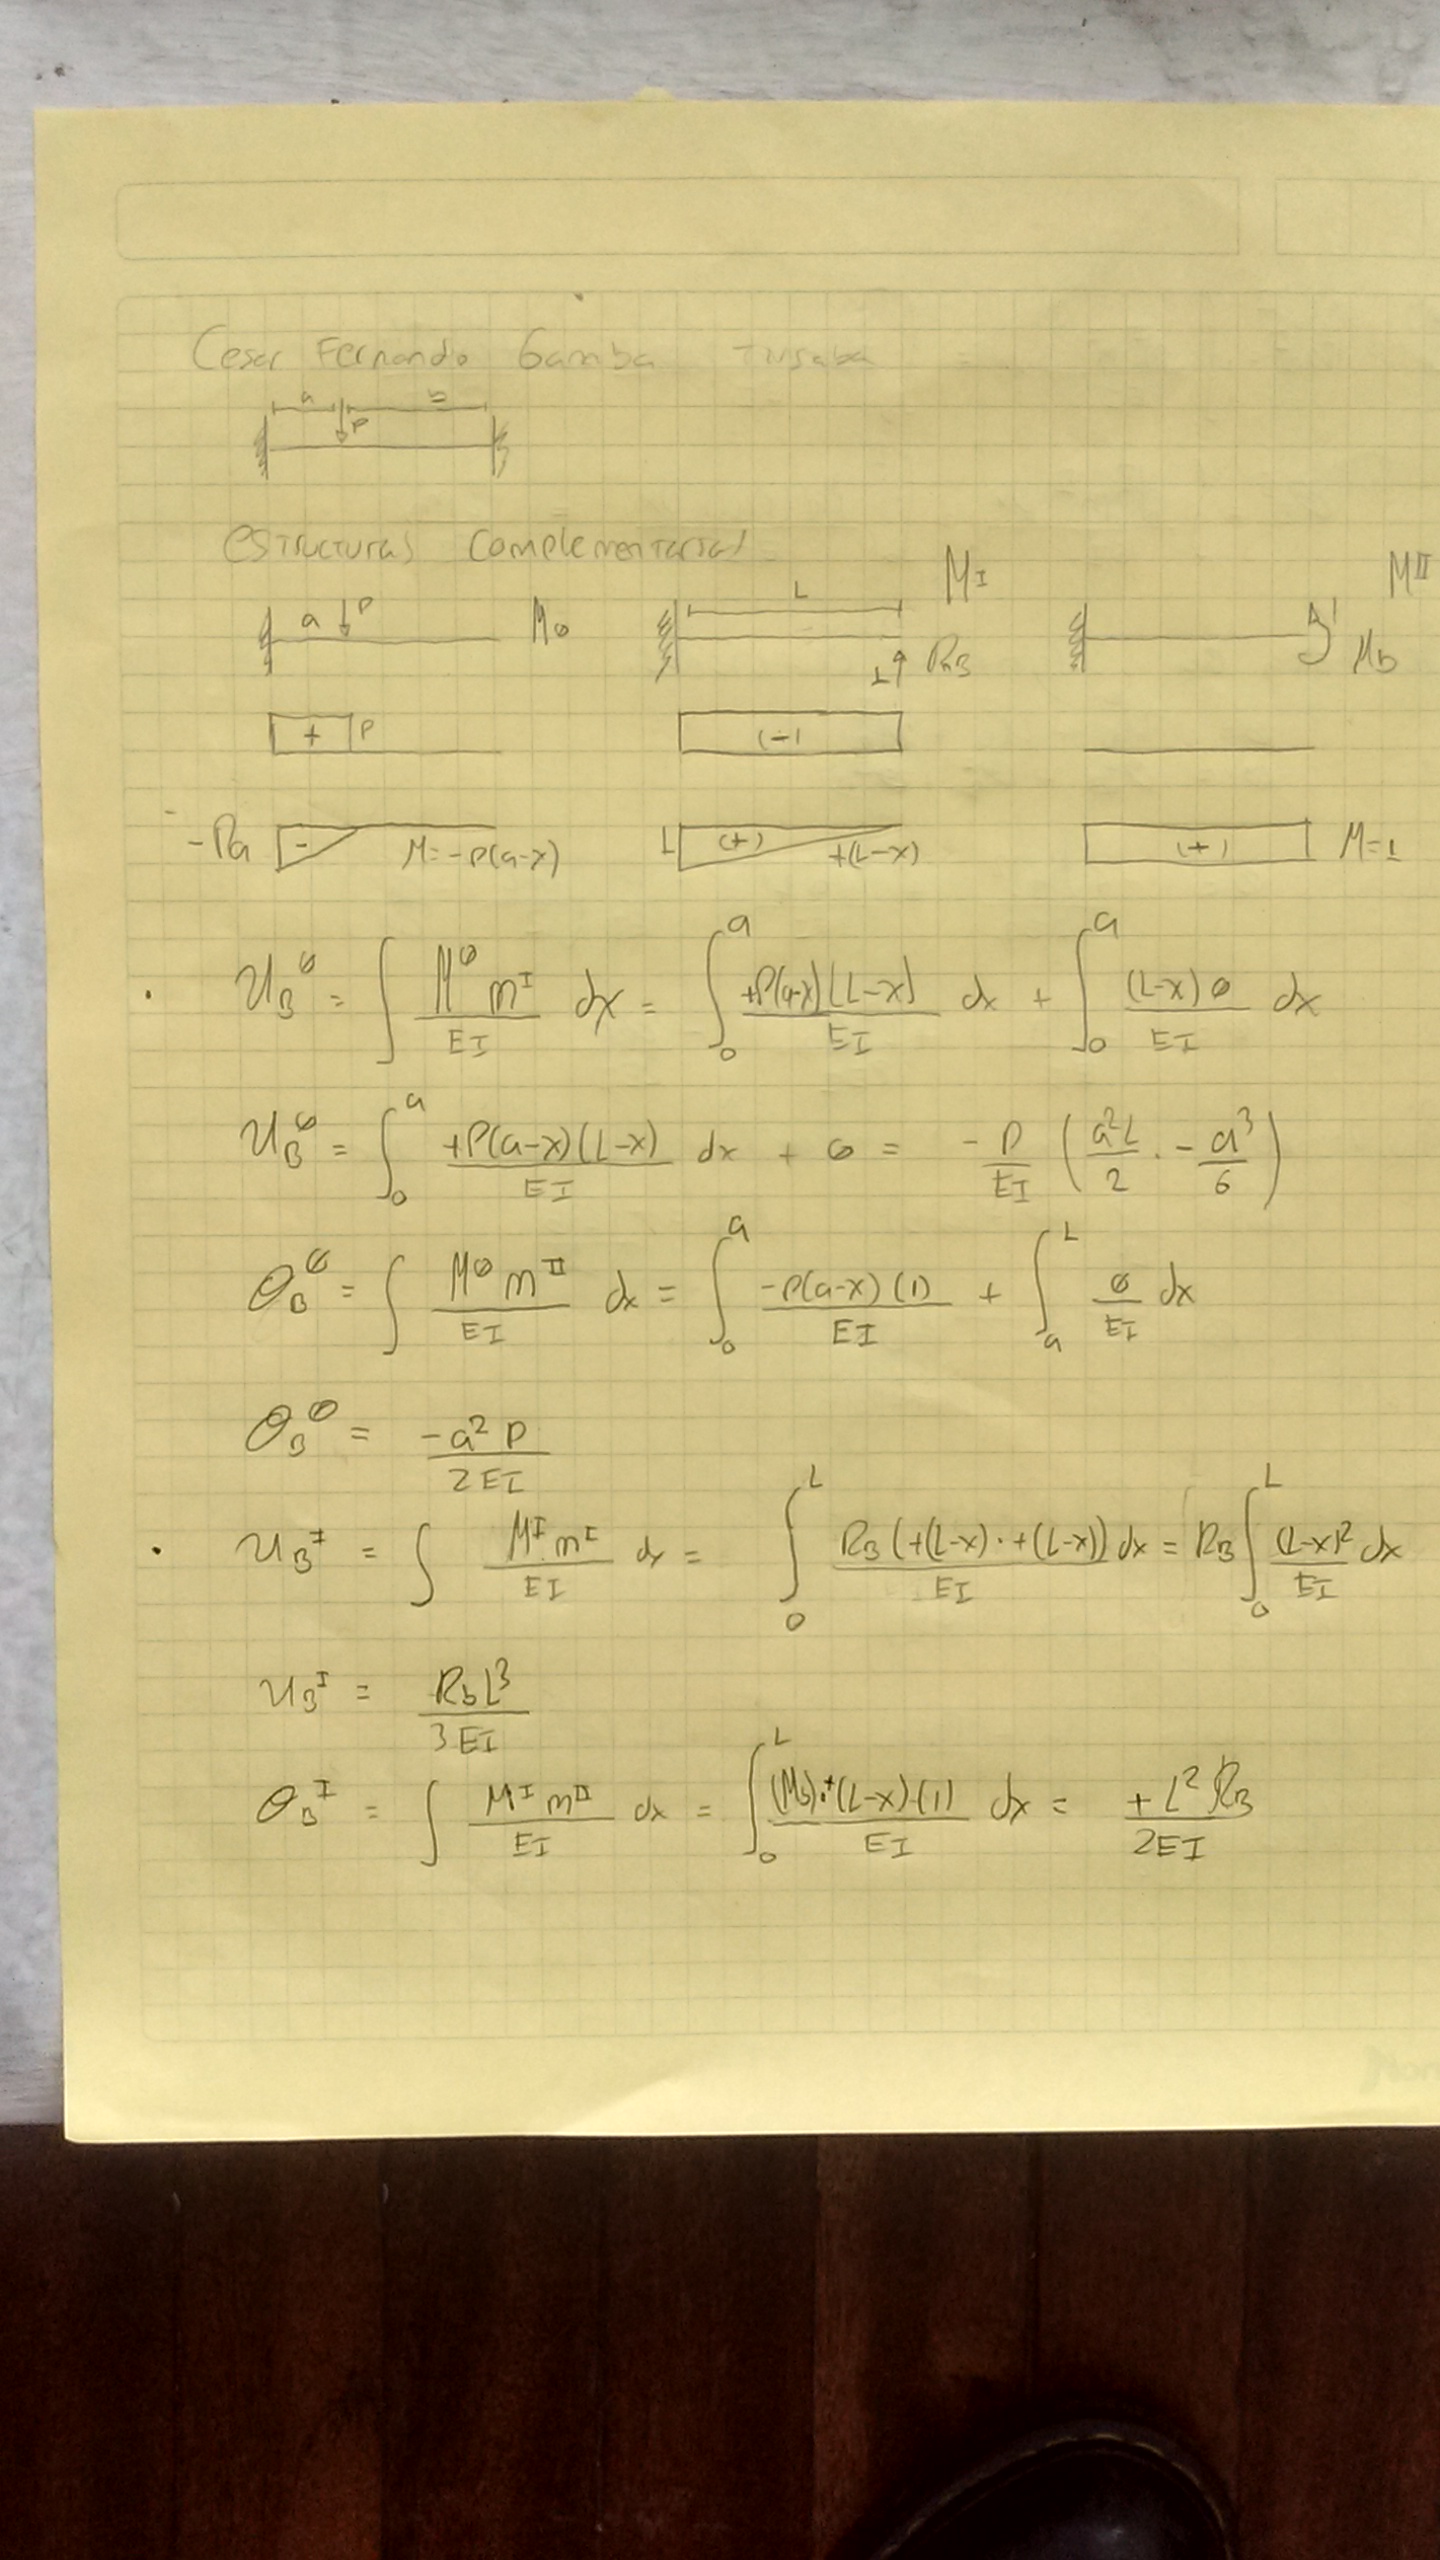 Cesar Fernando Gamba
a b
P
estructuras complementarias
a P M₀ L M I M II
1 R_B 1 M_b
+ P (-)
-Pa - M=-P(a-x) L (+) +(L-x) (+) M=1
· U_B^0 = ∫ M^0 m^I / EI dx = ∫_0^a +P(a-x)(L-x) / EI dx + ∫_0^a (L-x) 0 / EI dx
U_B^0 = ∫_0^a +P(a-x)(L-x) / EI dx + 0 = -P/EI (a²L/2 · - a³/6)
θ_B^0 = ∫ M^0 m^II / EI dx = ∫_0^a -P(a-x)(1) / EI + ∫_a^L 0/EI dx
θ_B^0 = -a² P / 2EI
· U_B^I = ∫ M^I m^I / EI dx = ∫_0^L R_B (+(L-x)·+(L-x)) / EI dx = R_B ∫_0^L (L-x)² / EI dx
U_B^I = R_b L³ / 3EI
θ_B^I = ∫ M^I m^II / EI dx = ∫_0^L (M_b)·+(L-x)·(1) / EI dx = + L² R_B / 2EI